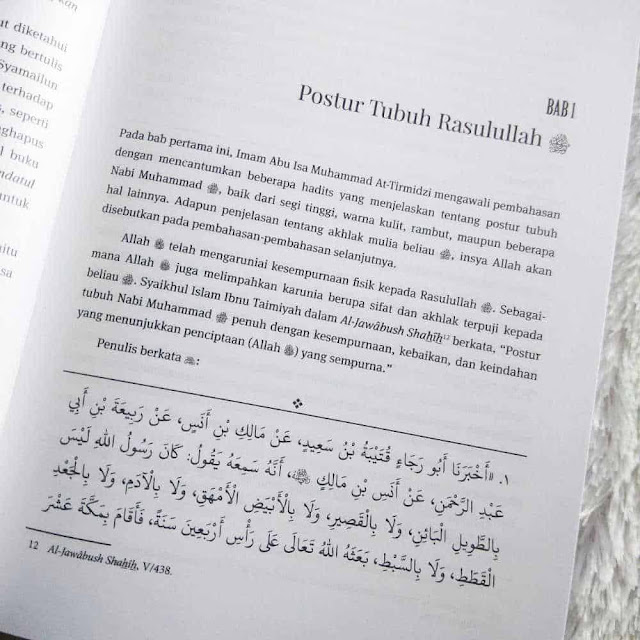 ut diketahui
ng bertulis
Syamailun
terhadap
s, seperti
nghapus
l buku
ndatul
untuk
aitu
sa
BAB I
Postur Tubuh Rasulullah ﷺ
Pada bab pertama ini, Imam Abu Isa Muhammad At-Tirmidzi mengawali pembahasan
dengan mencantumkan beberapa hadits yang menjelaskan tentang postur tubuh
Nabi Muhammad ﷺ, baik dari segi tinggi, warna kulit, rambut, maupun beberapa
hal lainnya. Adapun penjelasan tentang akhlak mulia beliau ﷺ, insya Allah akan
disebutkan pada pembahasan-pembahasan selanjutnya.
Allah telah mengaruniai kesempurnaan fisik kepada Rasulullah ﷺ. Sebagai-
mana Allah juga melimpahkan karunia berupa sifat dan akhlak terpuji kepada
beliau ﷺ. Syaikhul Islam Ibnu Taimiyah dalam Al-Jawâbush Shahîh¹² berkata, “Postur
tubuh Nabi Muhammad ﷺ penuh dengan kesempurnaan, kebaikan, dan keindahan
yang menunjukkan penciptaan (Allah) yang sempurna.”
Penulis berkata :
١. «أَخْبَرَنَا أَبُو رَجَاءٍ قُتَيْبَةُ بْنُ سَعِيدٍ، عَنْ مَالِكِ بْنِ أَنَسٍ، عَنْ رَبِيعَةَ بْنِ أَبِي
عَبْدِ الرَّحْمَنِ، عَنْ أَنَسِ بْنِ مَالِكٍ، أَنَّهُ سَمِعَهُ يَقُولُ: كَانَ رَسُولُ اللهِ لَيْسَ
بِالطَّوِيلِ الْبَائِنِ، وَلَا بِالْقَصِيرِ، وَلَا بِالْأَبْيَضِ الْأَمْهَقِ، وَلَا بِالْآدَمِ، وَلَا بِالْجَعْدِ
الْقَطَطِ، وَلَا بِالسَّبْطِ، بَعَثَهُ اللهُ تَعَالَى عَلَى رَأْسِ أَرْبَعِينَ سَنَةً، فَأَقَامَ بِمَكَّةَ عَشْرَ
12 Al-Jawâbush Shahîh, V/438.